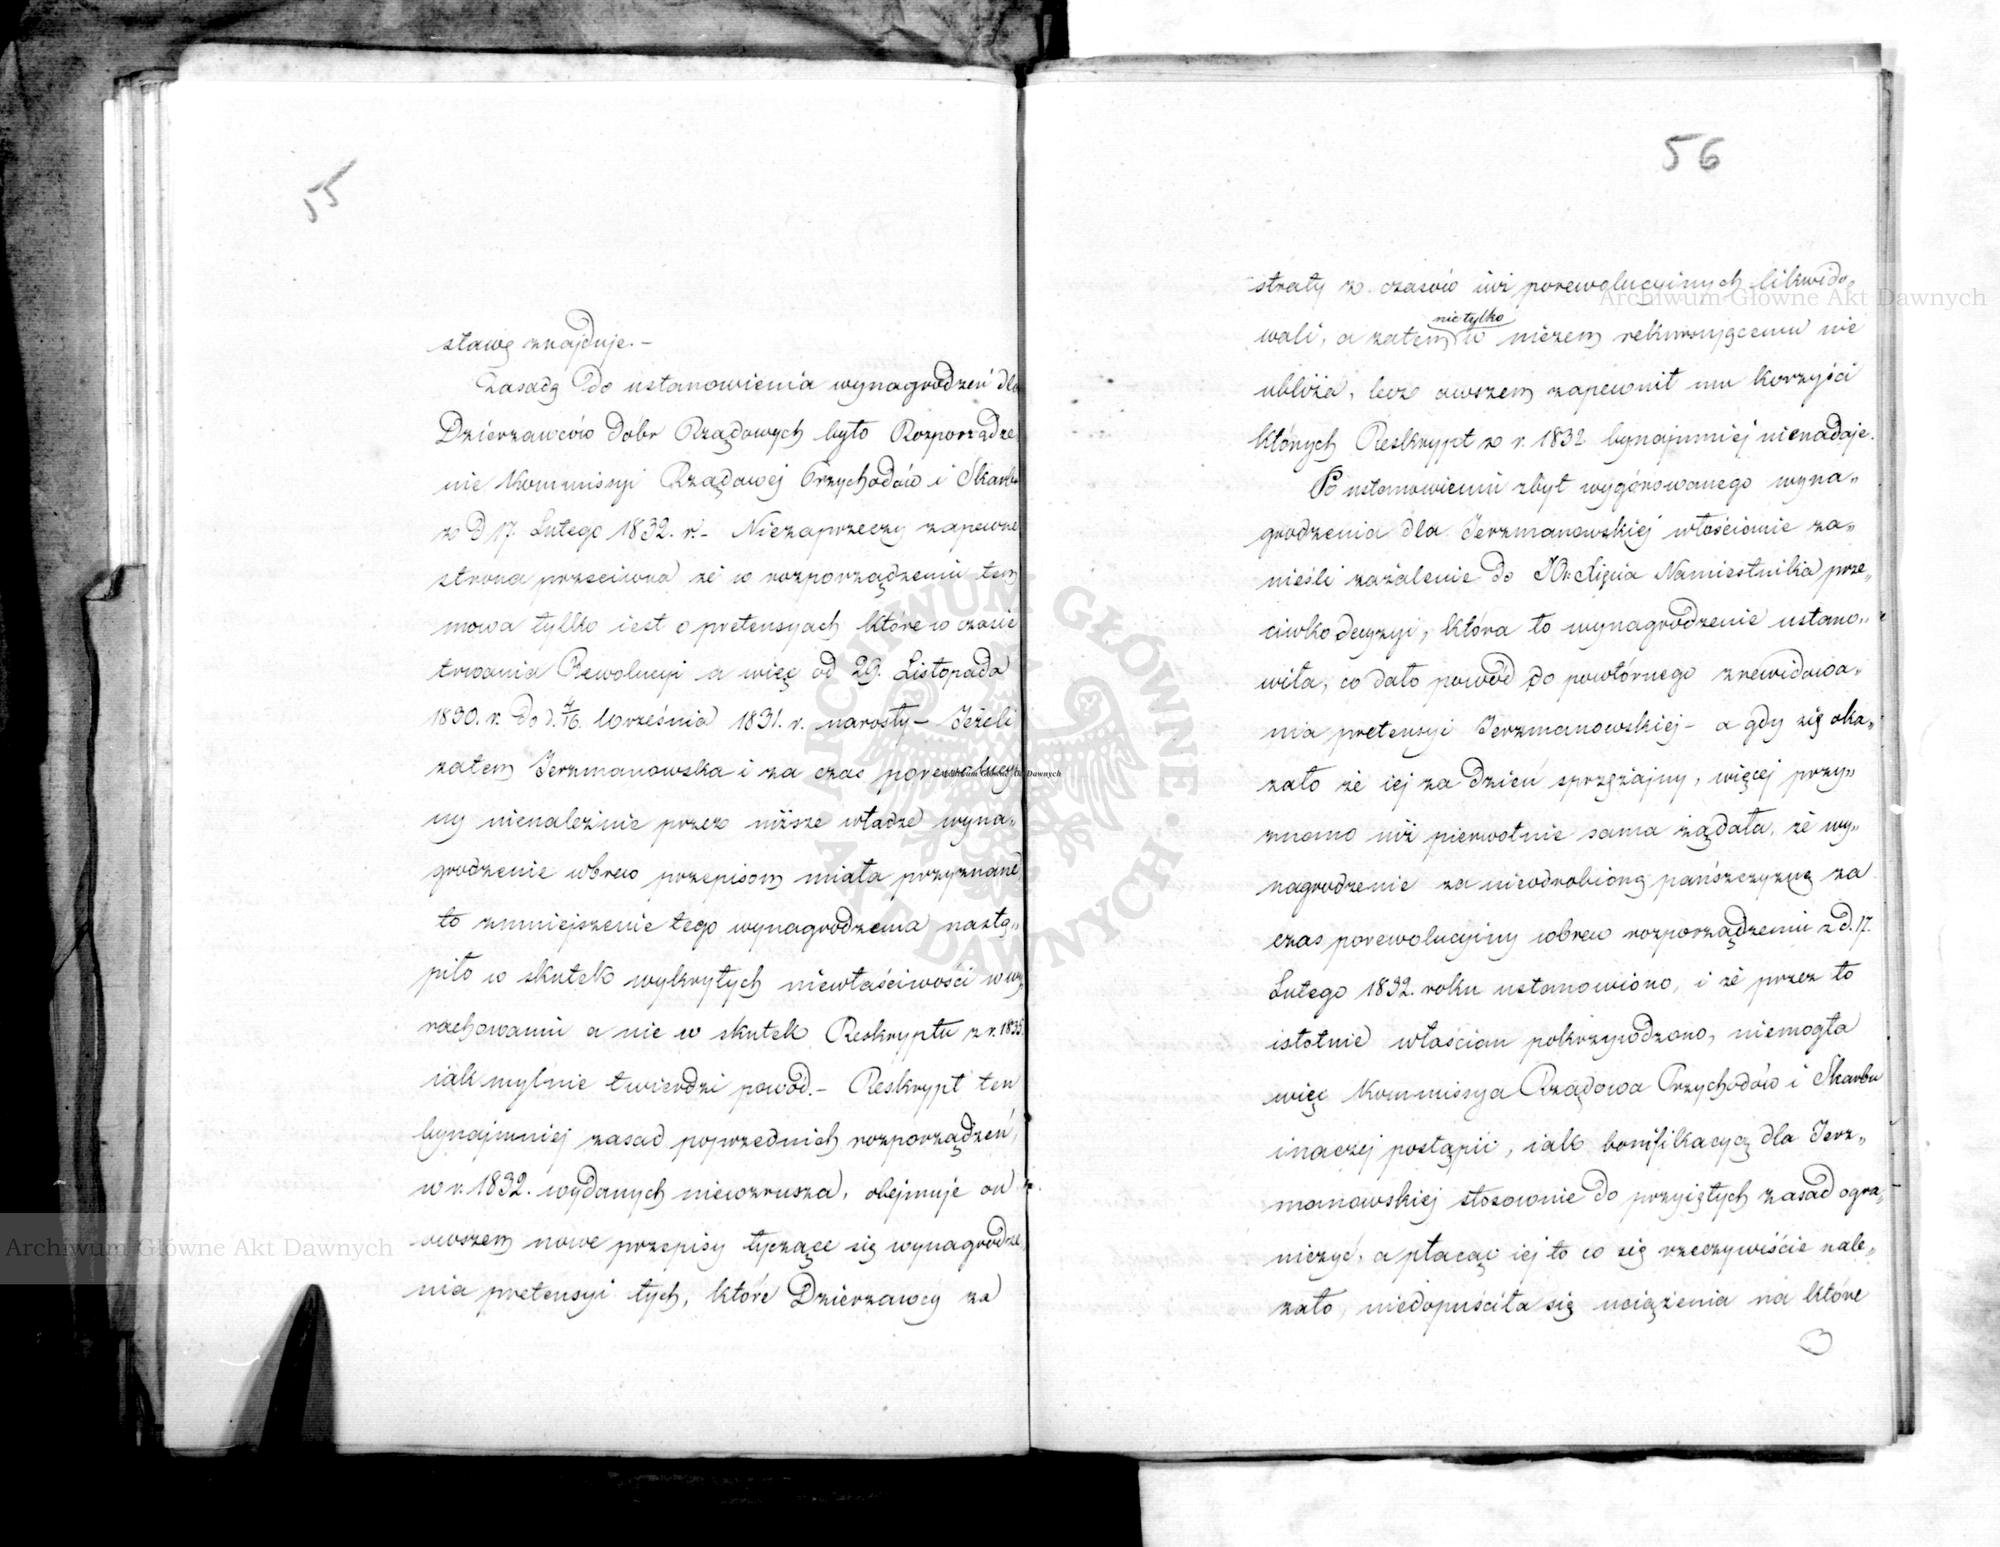 55
stawę znajduje. –
Zasadą do ustanowienia wynagrodzeń dla
Dzierzawców dóbr Rządowych było Rozporządze
nie Kommissyi Rządowej Przychodów i Skarbu
z D 17. Lutego 1832. r. – Niezaprzeczy zapewne
strona przeciwna że w rozporządzeniu tem
mowa tylko iest o pretensyach które w czasie
trwania Rewolucyi a więc od 29. Listopada
1830. r. do d. 4/16. Września 1831. r. narosły – Jeżeli
zatem Jerzmanowska i za czas porewolucyj
ny nienależnie przez niższe władze wyna„
grodzenie wbrew przepisom miała przyznane
to zmniejszenie tego wynagrodzenia nastą„
piło w skutek wykrytych niewłaściwości w wy
rachowaniu a nie w skutek Reskryptu z r. 1835.
iak mylnie twierdzi powód. – Reskrypt ten
bynajmniej zasad poprzednich rozporządzeń,
w r. 1832. wydanych niewzrusza, obejmuje on
owszem nowe przepisy tyczące się wynagrodze
nia pretensyi tych, które Dzierzawcy za
56
straty z czasów iuż porewolucyinych likwido„
nietylko
wali, a zatem w niczem rekursuiącemu nie
ubliża, lecz owszem zapewnił mu korzyści
których Reskrypt z r. 1832 bynajmniej nienadaje.
Po ustanowieniu zbyt wygórowanego wyna„
grodzenia dla Jerzmanowskiej włościanie za„
nieśli zażalenie do JO. Xięcia Namiestnika prze„
ciwko decyzyi, która to wynagrodzenie ustano„
wiła, co dało powód do powtórnego zrewidowa„
nia pretensyi Jerzmanowskiej – a gdy się oka„
zało że iej za dzień sprzężajny, więcej przy„
znano niż pierwotnie sama żądała, że wy„
nagrodzenie za nieodrobioną pańszczyznę za
czas porewolucyiny wbrew rozporządzeniu z d. 17.
Lutego 1832. roku ustanowiono, i że przez to
istotnie włościan pokrzywdzono, niemogła
więc Kommissya Rządowa Przychodów i Skarbu
inaczej postąpić, iak bonifikacyą dla Jerz„
manowskiej stosownie do przyiętych zasad ogra„
niczyć, a płacąc iej to co się rzeczywiście nale„
żało, niedopuściła się uciążenia na które
Archiwum Główne Akt Dawnych
Archiwum Główne Akt Dawnych
Archiwum Główne Akt Dawnych
ARCHIWUM GŁÓWNE AKT DAWNYCH